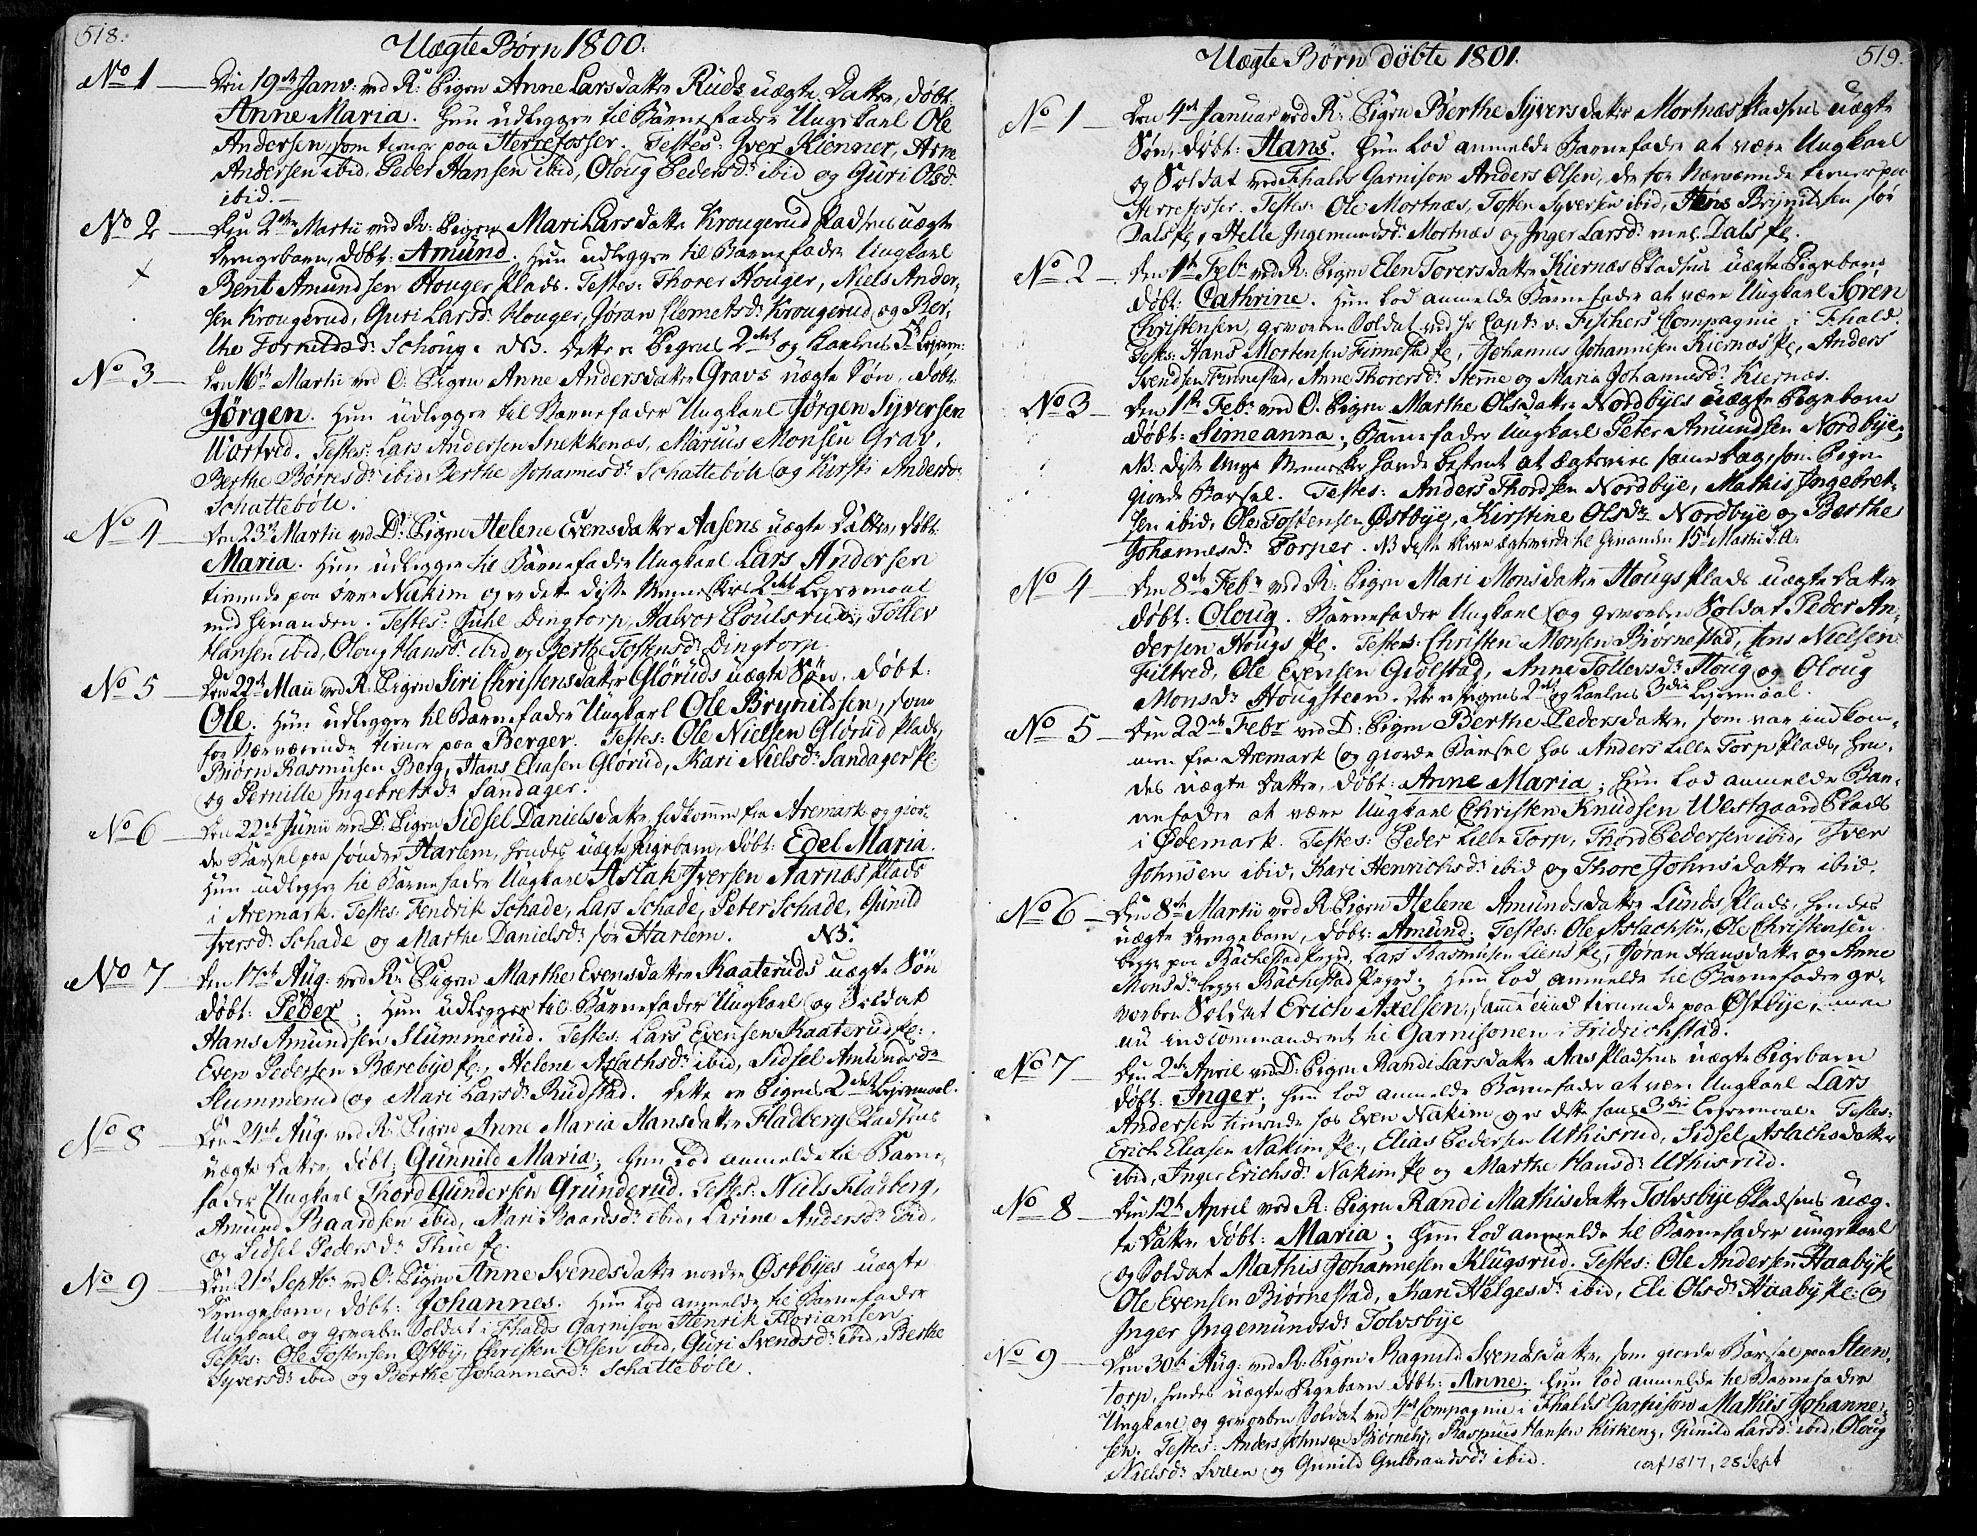 518.
Uægte Børn 1800.
No 1 Den 19de Janv: ved R: Pigen Anne Larsdatter Ruds uægte Datter, døbt
Anne Maria. Hun udlegger til Barnefader Ungkarl Ole
Andersen, som tiener paa Herrefosser. Testes: Iver Kienner, Arne
Andersen ibid, Peder Hansen ibid, Oloug Pedersdr ibid og Guri Olsdr
ibid.
No 2 Den 2den Martii ved R: Pigen Mari Larsdatter Krougerud Pladsens uægte
Drengebarn, døbt: Amund. Hun udlegger til Barnefader Ungkarl
Bent Amundsen Houger Plads. Testes: Thorer Houger, Niels Ander-
sen Krougerud, Guri Larsdr Houger, Jøran Clemetsdr Krougerud og Ber-
the Torkildsdr Schoug. NB. Dette er Pigens 2det og Karlens Lejerm:
No 3 Den 16de Martii ved O: Pigen Anne Andersdatter Gravs uægte Søn, døbt:
Jørgen. Hun udlegger til Barnefader Ungkarl Jørgen Syversen
Wortved. Testes: Lars Andersen Snekkenæs, Marius Monsen Grav,
Berthe Børresdr ibid, Berthe Johannesdr Schattebøle og Kirsti Andersdr
Schattebøle.
No 4 Den 23de Martii ved D: Pigen Helene Evensdatter Aasens uægte Datter, døbt
Maria. Hun udlegger til Barnefader Ungkarl Lars Andersen
tienende paa øvre Nakim og er dette disse Menneskers 2det Lejermaal
med hinanden. Testes: Juhl Dingtorp, Halvor Poulsrud, Tollev
Hansen ibid, Oloug Hansdr ibid og Berthe Tostensdr Dingtorp.
No 5 Den 22de Maii ved R: Pigen Siri Christensdatter Gløruds uægte Søn, døbt:
Ole. Hun udlegger til Barnefader Ungkarl Ole Brynildsen, som
for Nærværende tiener paa Berger. Testes: Ole Nielsen Glørud Plads,
Biørn Rasmusen Berg, Hans Eliasen Glørud, Kari Nielsdr Sandager Pl:
og Pernille Ingebretsdr Sandager.
No 6 Den 22de Junii ved D: Pigen Sidsel Danielsdatter, indkommen fra Aremark og gior-
de Barsel paa søndre Harlem, hendes uægte Pigebarn, døbt: Edel Maria.
Hun udlegger til Barnefader Ungkarl Aslak Iversen Aarnæs Plads
i Aremark. Testes: Fendrik Schade, Lars Schade, Peter Schade, Gunild
Iversdr Schade og Marthe Danielsdr søe Harlem. NB.
No 7 Den 17de Aug: ved R: Pigen Marthe Evensdatter Kaateruds uægte Søn
døbt: Peder; Hun udlegger til Barnefader Ungkarl og Soldat
Hans Amundsen Slummerud. Testes: Lars Evensen Kaaterud Pl:.
Even Pedersen Bærebye Pl:, Helene Aslachsdr ibid, Sidsel Amundsdr
Slummerud og Mari Larsdr Rudstad. Dette er Pigens 2det Lejermaal.
No 8 Den 24de Aug: ved R: Pigen Anne Maria Hansdatter Fladberg Pladsens
uægte Datter, døbt; Gunnild Maria; Hun Lod anmelde til Barne-
fader Ungkarl Thord Gundersen Grunderud. Testes: Niels Fladberg,
Amund Baardsen ibid, Mari Baardsdr ibid, Larine Andersdr ibid,
og Sidsel Pedersdr Thue Pl:
No 9 Den 21de Septbr ved O: Pigen Anne Svendsdatter nordre Østbyes uægte
Drengebarn, døbt: Johannes. Hun Lod anmelde til Barnefader
Ungkarl og gevorben Soldat i Fhalds Garnison Henrik Floriansen
Testes: Ole Tostensen Østby, Christen Olsen ibid, Guri Svendsdr ibid, Berthe
Syversdr ibid og Berthe Johannesdr Schattebøle.
519.
Uægte Børn døbte 1801.
No 1 Den 4de Januar ved R: Pigen Berthe Syversdatter Mortnæs Pladsens uægte
Søn, døbt: Hans. Hun Lod anmelde Barnefader at være Ungkarl
og Soldat ved Fhalds Garnison Anders Olsen, der for Nærværende tiener paa
Herrefosser. Testes: Ole Mortnæs, Tosten Syversen ibid, Hans Brynildsen søe
Dals Pl:, Helle Ingemundsdr Mortnæs og Inger Larsdr Dals Pl:.
No 2 Den 1ste Febr: ved R: Pigen Elen Torersdatter Kiernæs Pladsens uægte Pigebarn
døbt: Cathrine. Hun Lod anmelde Barnefader at være Ungkarl Søren
Christensen, gevorben Soldat ved Hr Capt: v: Fischers Compagnie i Fhald.
Testes: Hans Mortensen Finnestad Pl:, Johannes Johannesen Kiernæs Pl:, Anders
Svendsen Finnestad, Anne Thorersdr Stenne og Maria Johannesdr Kiernæs.
No 3 Den 1ste Febr: ved O: Pigen Marthe Olsdatter Nordbyes uægte Pigebarn
døbt: Simeanna; Barnefader Ungkarl Peter Amundsen Nordbye.
NB. disse Unge Mennesker havde bestemt at ægtevies samme Dag, som Pigen
giorde Barsel. Testes: Anders Thordsen Nordbye, Mathis Ingebret-
sen ibid, Ole Tostensen Østbye, Kirstine Olsdr Nordbye og Berthe
Johannesdr Torper. NB disse bleve ægteviede til hinanden 15de Martii s.a.
No 4 Den 8de Febr ved R: Pigen Mari Monsdatter Hougs Plads uægte Datter
døbt: Oloug. Barnefader Ungkarl og gevorben Soldat Peder An-
dersen Hougs Pl:. Testes: Christen Monsen Biørnestad, Jens Nielsen
Filtved, Ole Evensen Giølstad, Anne Tollevsdr Houg og Oloug
Monsdr Hougsteen. Dette er Pigens 2det og Karlens 3die Lejermaal.
No 5 Den 22de Febr ved D: Pigen Berthe Pedersdatter, som var indkom-
men fra Aremark og giorde Barsel hos Anders Lille Torp Plads, hen-
des uægte Datter, døbt: Anne Maria; Hun Lod anmelde Bar-
nefader at være Ungkarl Christen Knudsen Westgaard Plads
i Ødemark. Testes: Peder Lille Torp, Thord Pedersen ibid, Iver
Johnsen ibid, Kari Henrichsdr ibid og Thore Johnsdatter ibid.
No 6 Den 8de Martii ved R: Pigen Helene Amundsdatter Lunds Plads, hendes
uægte Drengebarn, døbt: Amund; Testes: Ole Aslachsen, Ole Christensen
begge paa Bachestad Pegrd, Lars Rasmusen Liens Pl:, Jøran Hansdatter og Anne
Monsdr begge Bachestad Pegrd; Hun Lod anmelde til Barnefader ge-
vorben Soldat Erich Axelsen, tienende paa Østbye, men
nu indcommanderet til Garnisonen i Fridrichstad.
No 7 Den 2de April ved D: Pigen Randi Larsdatter Aas Pladsens uægte Pigebarn
døbt: Inger; Hun Lod anmelde Barnefader at være Ungkarl Lars
Andersen tienende hos Even Nakim og er dette hans 3die Lejermaal. Testes:
Erich Eliasen Nakim Pl:, Elias Pedersen Uthisrud, Sidsel Aslachsdatter
ibid, Inger Erichsdr Nakim Pl: og Marthe Hansdr Uthisrud.
No 8 Den 12te April ved R: Pigen Randi Mathisdatter Tolvsbye Pladsens uæg-
te Datter, døbt: Maria; Hun Lod anmelde til Barnefader ungkarl
og Soldat Mathis Johannesen Klugsrud. Testes: Ole Andersen Haabye Pl:
Ole Evensen Biørnestad, Kari Helgesdr ibid, Eli Olsdr Haabye Pl: og
Inger Ingemundsdr Tolvsbye
No 9 Den 30te Aug: ved R: Pigen Ragnild Svendsdatter, som giorde Barsel paa Steen-
torp, hendes uægte Pigebarn døbt: Anne; Hun Lod anmelde til Barnefader
Ungkarl og gevorben Soldat ved 4de Compagnie i Fhalds Garnison Mathis Johanne-
sen. Testes: Anders Johnsen Biørneby, Rasmus Hansen Kirkeng, Gunild Larsdr ibid, Oloug
Nielsdr Svilen og Gunild Gulbrandsdr ibid. conf 1817, 28 Sept